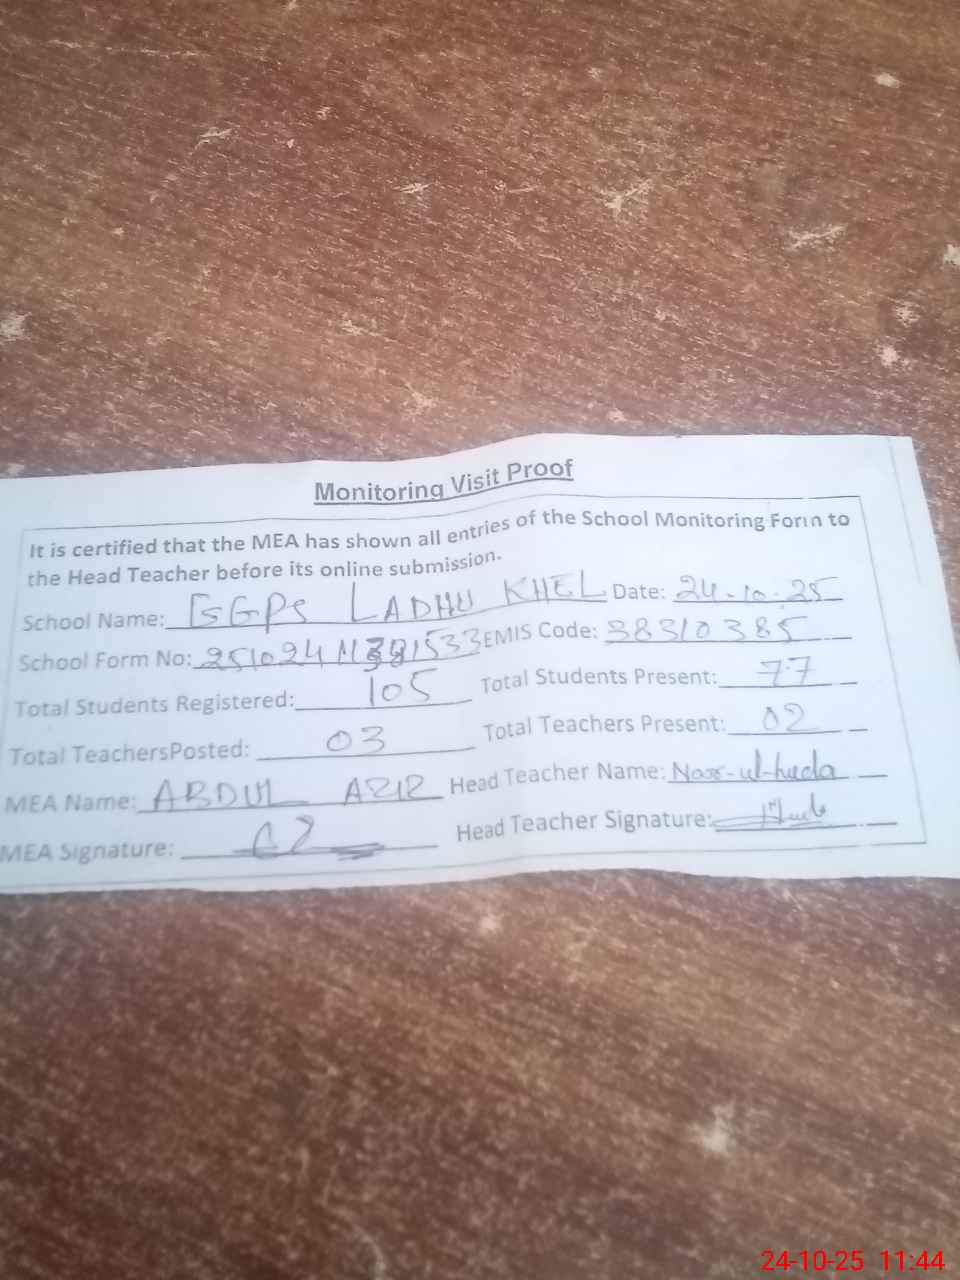 Monitoring Visit Proof
It is certified that the MEA has shown all entries of the School Monitoring Form to
the Head Teacher before its online submission.
School Name: GGPS LADHU KHEL Date: 24-10-25
School Form No: EMIS Code: 38310385
Total Students Registered: 105 Total Students Present: 77
Total TeachersPosted: 03 Total Teachers Present: 02
MEA Name: ABDUL AZIZ Head Teacher Name: Noor-ul-huda
MEA Signature: Head Teacher Signature:
24-10-25 11:44